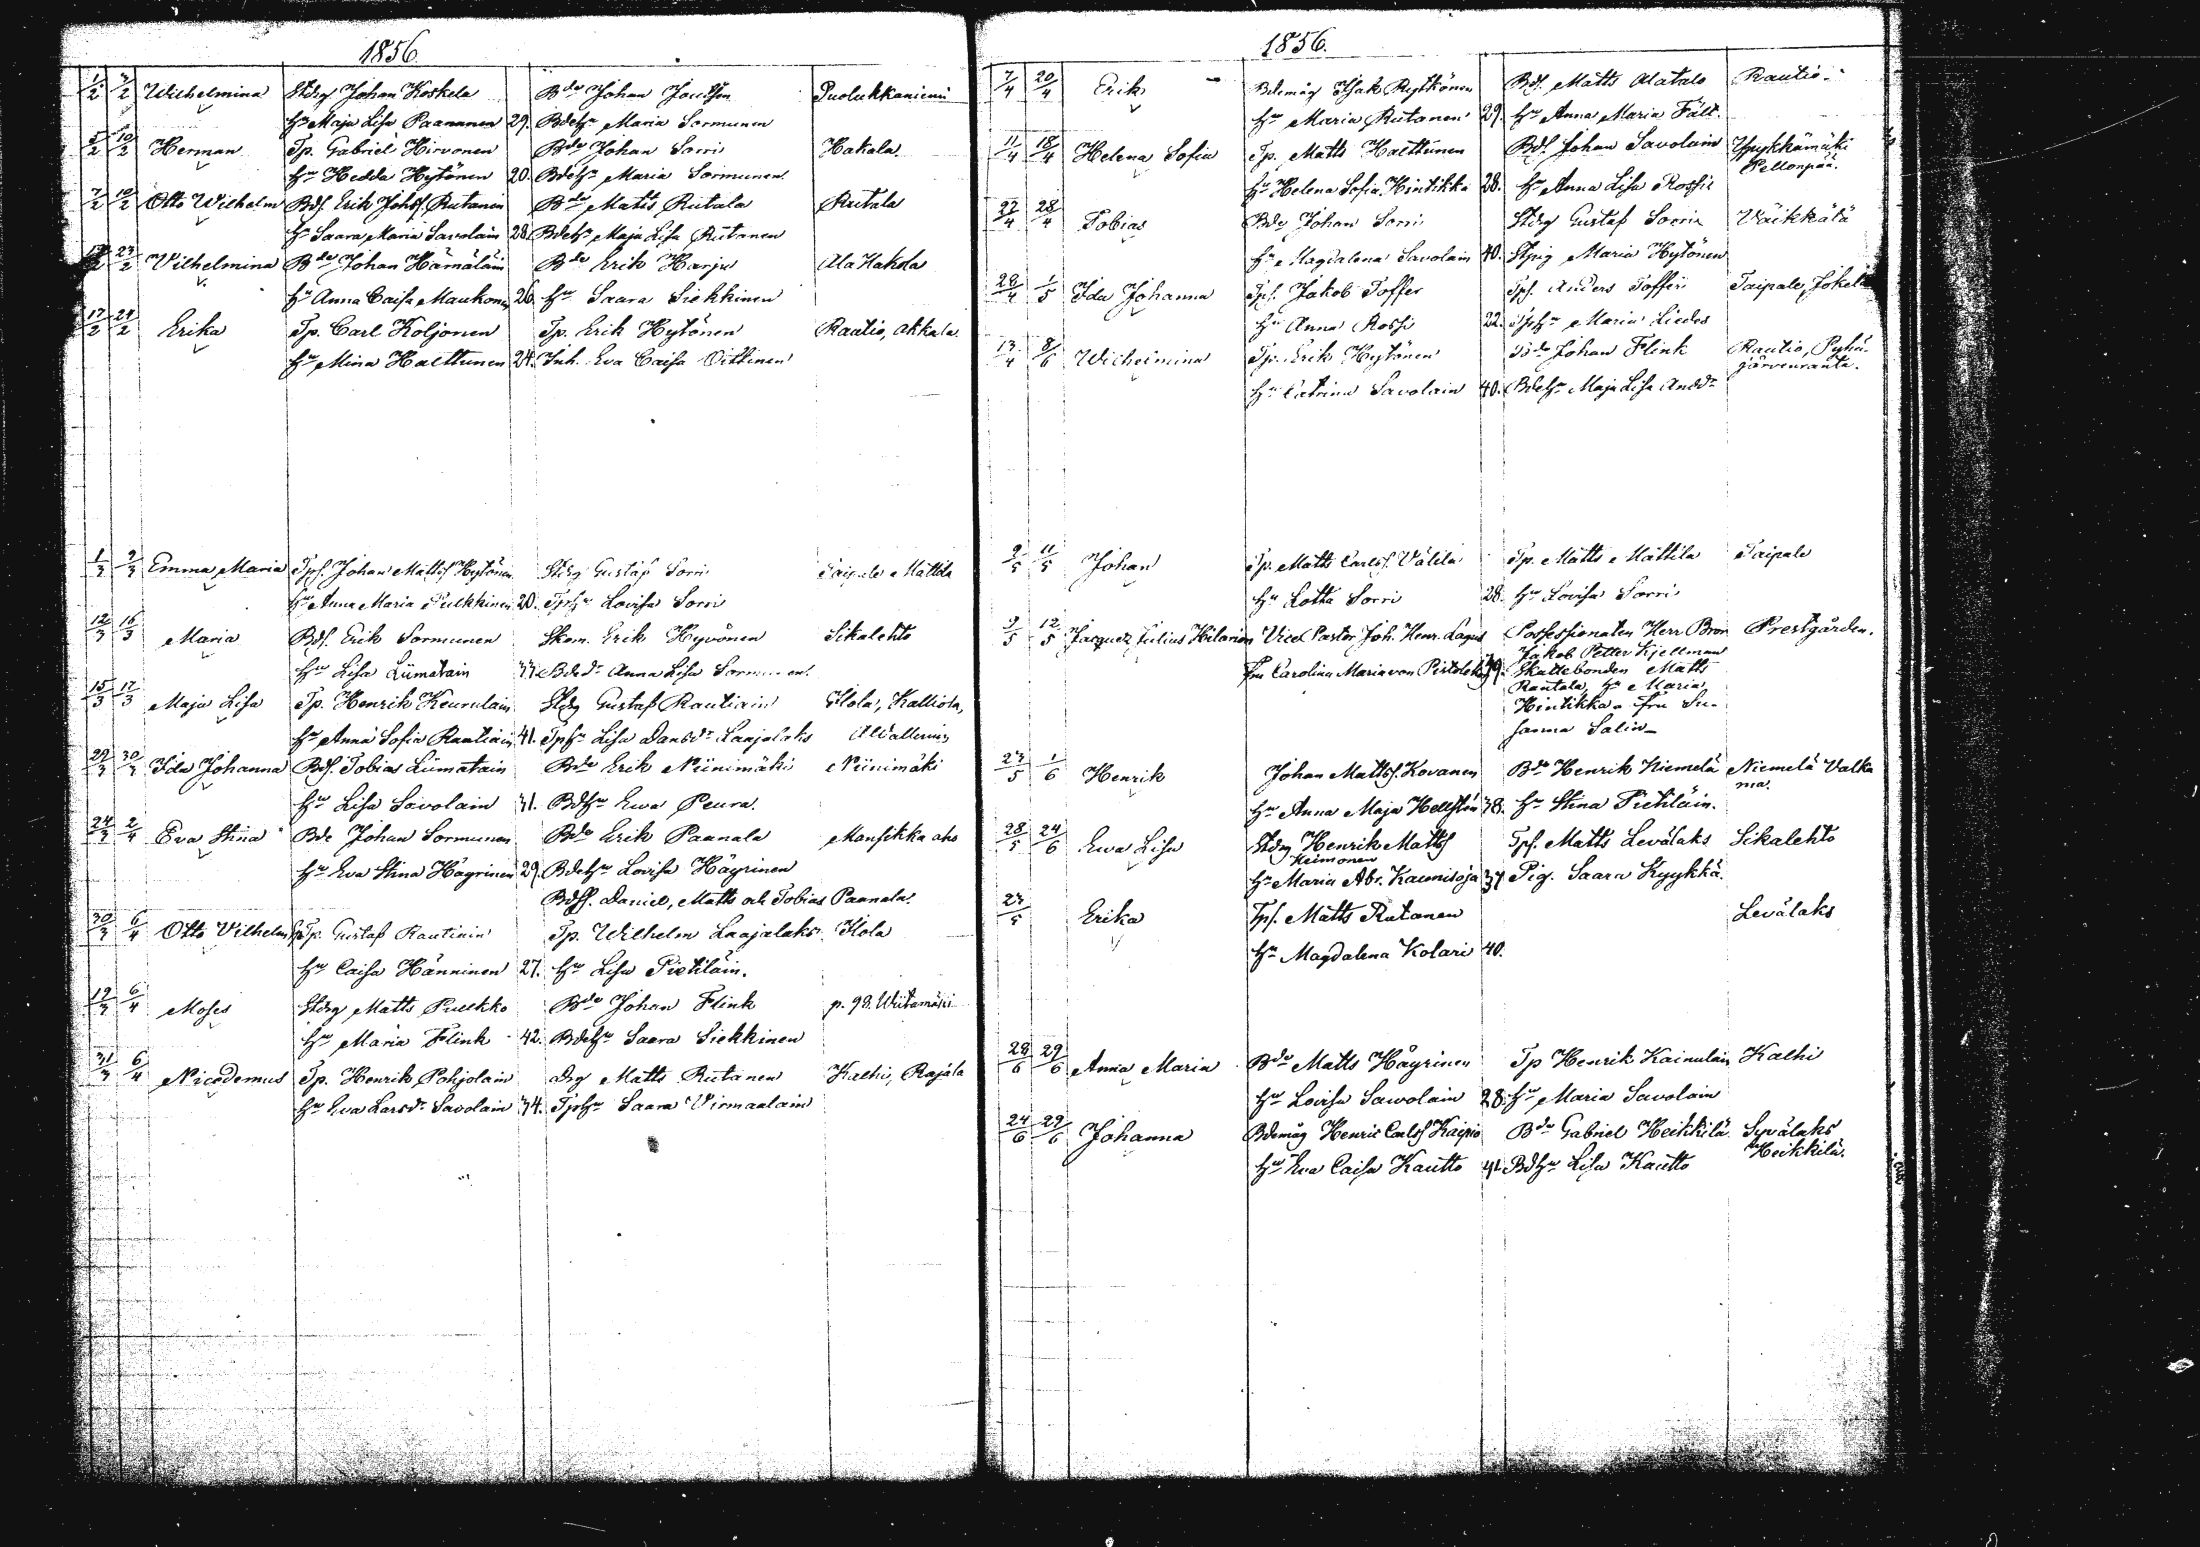 1856.
1/2 3/2 Wilhelmina Stdrg Johan Koskela Bde Johan Puolukkaniemi
Hu Maja Lisa Paananen 29. Bdehu Maria Sormunen
5/2 10/2 Herman Tp. Gabriel Hirvonen Bde Johan Sorri Hakala.
Hu Hedda Hytönen 20. Bdehu Maria Sormunen
7/2 10/2 Otto Wilhelm Bds. Erik Johss. Rutanen Bde Matts Rutala Rutala
Hu Saara Maria Savolain 28. Bdehu Maja Lisa Rutanen
23/2 Vilhelmina Bde Johan Hämäläin Bde Erik Harju Ala Hakola
Hu Anna Caisa Maukonen 26. Hu Saara Siekkinen
17/2 24/2 Erika Tp. Carl Koljonen Tp. Erik Hytönen Rautio, Akkala.
Hu Mina Haettunen 24. Inh. Eva Caisa Oittinen
1/3 2/3 Emma Maria Tps. Johan Mattss Hytönen Stdrg Gustaf Sorri Taipale Mattila
Hu Anna Maria Pulkkinen 20. Tpshu Lovisa Sorri
12/3 16/3 Maria Bds. Erik Sormunen Skom. Erik Hyvönen Sikalehto
Hu Lisa Liimatain 33. Bdedr Anna Lisa Sormunen.
15/3 17/3 Maja Lisa Tp. Henrik Keurulain Stdrg Gustaf Rautiain Ilola, Kalliola,
Hu Anna Sofia Rautiain 41. Tpshu Lisa Dansdr Laajalaks
29/3 30/3 Ida Johanna Bds. Tobias Liimatain Bde Erik Niinimäki Niinimäki
Hu Lisa Savolain 31. Bdshu Ewa Peura.
24/3 2/4 Eva Stina Bde Johan Sormunen Bde Erik Paanala Mansikka aho
Hu Eva Stina Häyrinen 29. Bdehu Lovisa Häyrinen
Bdss. Daniel, Matts och Tobias Paanala.
30/3 6/4 Otto Vilhelm Tp. Gustaf Rautiain Tp. Wilhelm Laajalaks Ilola
Hu Caisa Hänninen 27. Hu Lisa Pietiläin.
19/3 6/4 Moses Stdrg Matts Pulkko Bde Johan Flink p. 98. Wiitamäki
Hu Maria Flink 42. Bdehu Saara Siekkinen
31/3 6/4 Nicodemus Tp. Henrik Pohjolain Drg Matts Rutanen Kalhi, Rajala
Hu Eva Larsdr Savolain 34. Tpshu Saara Virmaalain
1856.
7/4 20/4 Erik Bdemåg Isak Rytkönen Bds. Matts Alatalo Rautio.
Hu Maria Rutanen 29. Hu Anna Maria Fält.
11/4 18/4 Helena Sofia Tp. Matts Haettunen Bds. Johan Savolain Hyykkämäki
Pellonpää.
Hu Helena Sofia Hintikka 28. Hu Anna Lisa Rossi
22/4 28/4 Tobias Bde Johan Sorri Stdrg Gustaf Sorri Väikkälä
Hu Magdalena Savolain 40. Stpig Maria Hytönen
28/4 1/5 Ida Johanna Tps. Jakob Toffer Tps. Anders Toffer Taipale, Jokela
Hu Anna Rossi 22. Tpshu Maria Liedes
13/4 8/6 Wilhelmina Tp. Erik Hytönen Bde Johan Flink Rautio, Pyhä-
järvenranta.
Hu Catrina Savolain 40. Bdehu Maja Lisa Andr
9/5 11/5 Johan Tp. Matts Carlss. Välilä Tp. Matts Mattila Taipale
Hu Lotta Sorri 28. Hu Lovisa Sorri
9/5 12/5 Jacques Julius Hilarion Vice Pastor Joh. Henr. Lagus Possessionaten Herr Bron Prestgården.
Jakob Petter Kjellman
Fru Carolina Maria von Pistolekors 39. Skattebonden Matts
Rantala, Hu Maria
Hintikka o. Fru Su-
sanna Salin
23/5 1/6 Henrik Johan Mattss. Kovanen Bde Henrik Niemelä Niemelä Valka
ma.
Hu Anna Maja Hellstén 38. Hu Stina Pietiläin.
28/5 24/6 Ewa Lisa Stdrg Henrik Mattss Tps. Matts Levälaks Sikalehto
Keimonen
Hu Maria Abr. Kaunisoja 37 Pig. Saara Kyykkä.
23/5 Erika Tps. Matts Rutanen Levälaks
Hu Magdalena Kolari 40.
28/6 29/6 Anna Maria Bde Matts Häyrinen Tp Henrik Kainulain Kalhi
Hu Lovisa Sawolain 28. Hu Maria Savolain
24/6 29/6 Johanna Bdemåg Henric Carlss Kaipio Bde Gabriel Heikkilä Syvälaks
Heikkilä.
Hu Eva Caisa Kautto 41 Bdshu Lisa Kautto